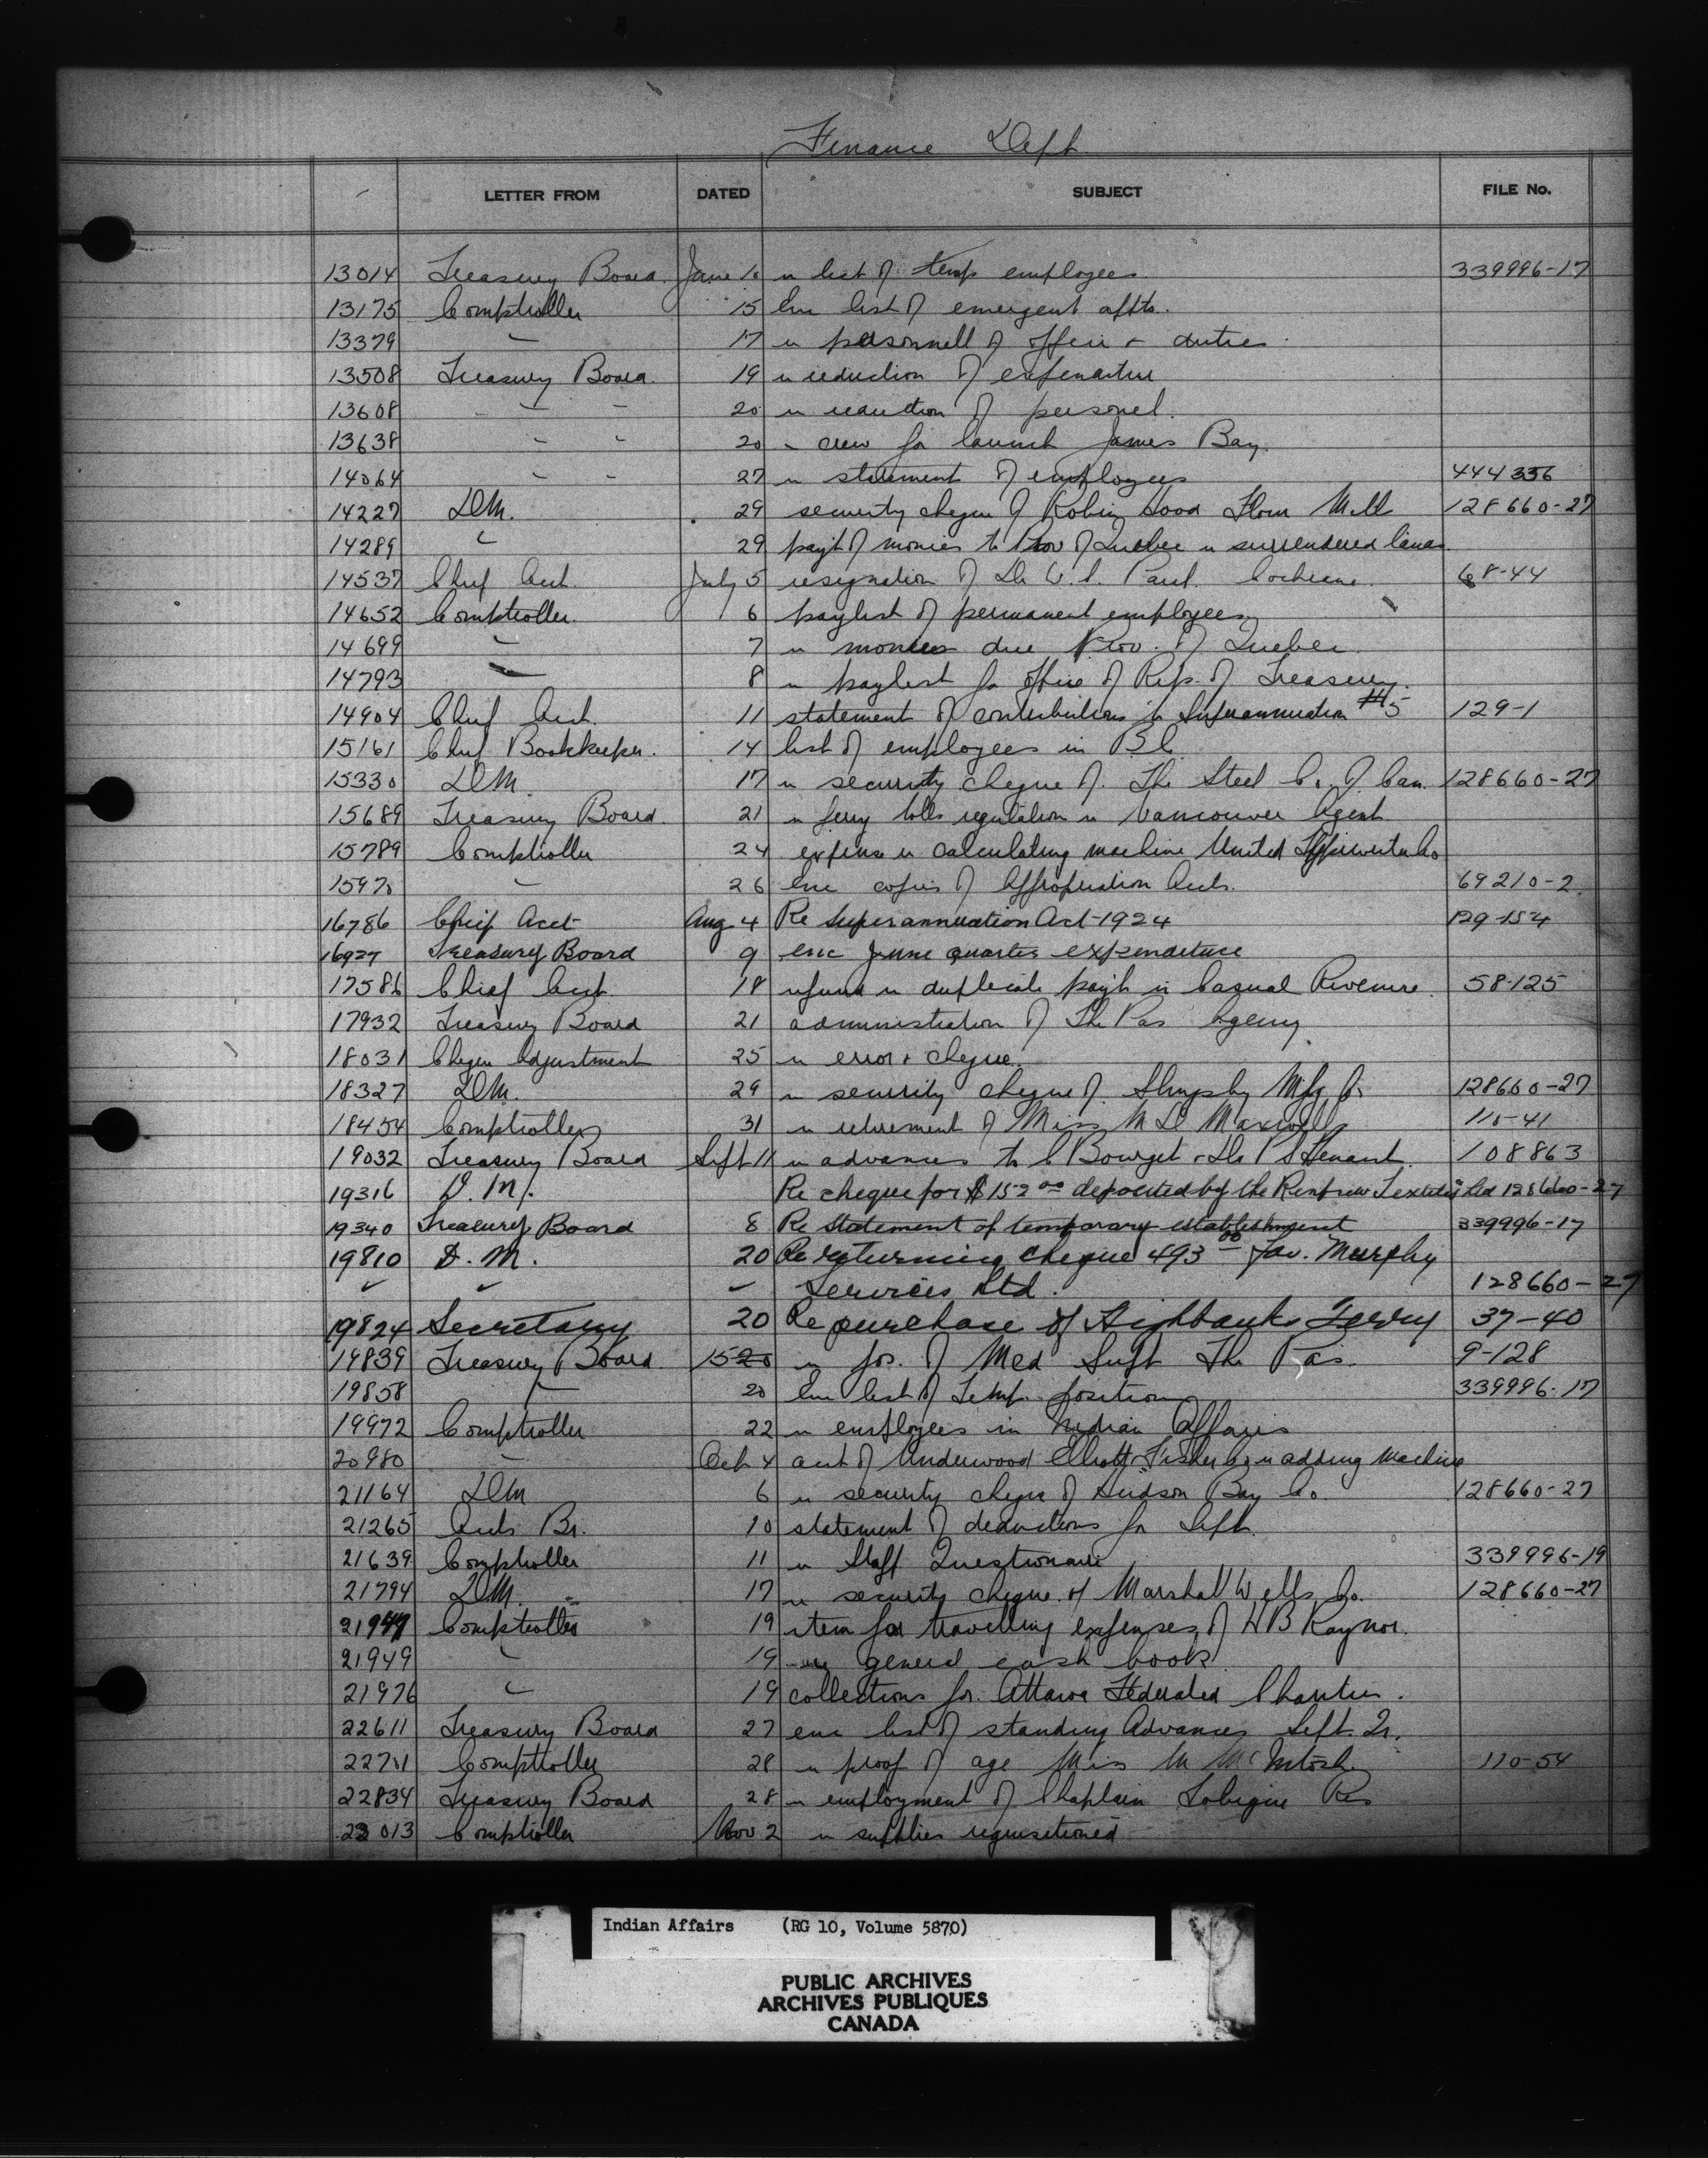 Finance Dept
LETTER FROM DATED SUBJECT FILE No.
13014 Treasury Board June 16 re list of temp employees 339996-17
13175 Comptroller 15 Enc list of emergent appts.
13379 " 17 re personnell of office & duties
13508 Treasury Board. 19 re reduction of expenditure
13608 " " 20 re reduction of personel.
13638 " " 20 re crew for launch James Bay.
14064 " " 27 re statement of employees 444336
14227 D.M. 29 security cheque of Robin Hood Flour Mill 128660-27
14289 " 29 payt of monies to Prov of Quebec re surrendered lands.
14537 Chief Acct. July 5 resignation of Dr W.S. Paul. Cochrane. 68-44
14652 Comptroller. 6 paylist of permanent employees
14699 " 7 re monies due Prov. of Quebec
14793 " 8 re paylist for office of Rep. of Treasury.
14904 Chief Acct. 11 statement of contributions to Superannuation #5 129-1
15161 Chief Bookkeeper. 14 list of employees in B C.
15330 D.M. 17 re security cheque of. The Steel Co. of Can. 128660-27
15689 Treasury Board. 21 re ferry tolls regulation re Vancouver Agent
15789 Comptroller 24 expense re calculating machine United Typewriter Co
1597 " 26 Enc copies of Appropriation Accts. 69210-2.
16786 Chief Acct Aug 4 Re Superannuation Act-1924 129-154
16927 Treasury Board 9 enc June quarter expenditure
17586 Chief Acct. 18 refund re duplicate payt in Casual Revenue. 58-125
17932 Treasury Board 21 administration of The Pas Agency
18031 Cheque Adjustment 25 re error & cheque.
18327 D.M. 29 re security cheque of. Slingsby Mfg Co 128660-27
18454 Comptroller 31 re retirement of Miss M D Maxwell 110-41
19032 Treasury Board Sept 11 re advances to C Bourget & Dr P S Tennant. 108863
19316 D. M. Re cheque for $152 00 deposited by the Renfrew Textiles Ltd 128660-27
19340 Treasury Board 8 Re Statement of temporary establishment 339996-17
19810 D. M. 20 Re returning cheque 493 00 fav. Murphy
" " " Services Ltd. 128660-27
19824 Secretary 20 Re purchase of Highbanks Ferry 37-40
19839 Treasury Board. 15 20 re pos. of Med Supt The Pas. 9-128
19858 " 20 Enc list of Temp. position 339996-17
19972 Comptroller 22 re employees in Indian Affairs
20980 " Oct 4 acct of Underwood Elliott Fisher Co re adding machine
21164 D.M 6 re security cheque of Hudson Bay Co. 128660-27
21265 Accts Br. 10 statement of deductions for Sept.
21639 Comptroller 11 re Staff Questionaire 339996-19
21794 D.M. 17 re security cheque of Marshall Wells Co. 128660-27
21947 Comptroller 19 item for travelling expenses of H B Raynor.
21949 " 19 re general cash book
21976 " 19 collections for Ottawa Federated Charities.
22611 Treasury Board 27 enc list of standing Advances Sept. Qr.
22701 Comptroller 28 re proof of age Miss M McIntosh 110-54
22834 Treasury Board 28 re employment of Chaplain Res
23013 Comptroller Nov 2 re supplies requisitioned
Indian Affairs (RG 10, Volume 5870)
PUBLIC ARCHIVES
ARCHIVES PUBLIQUES
CANADA